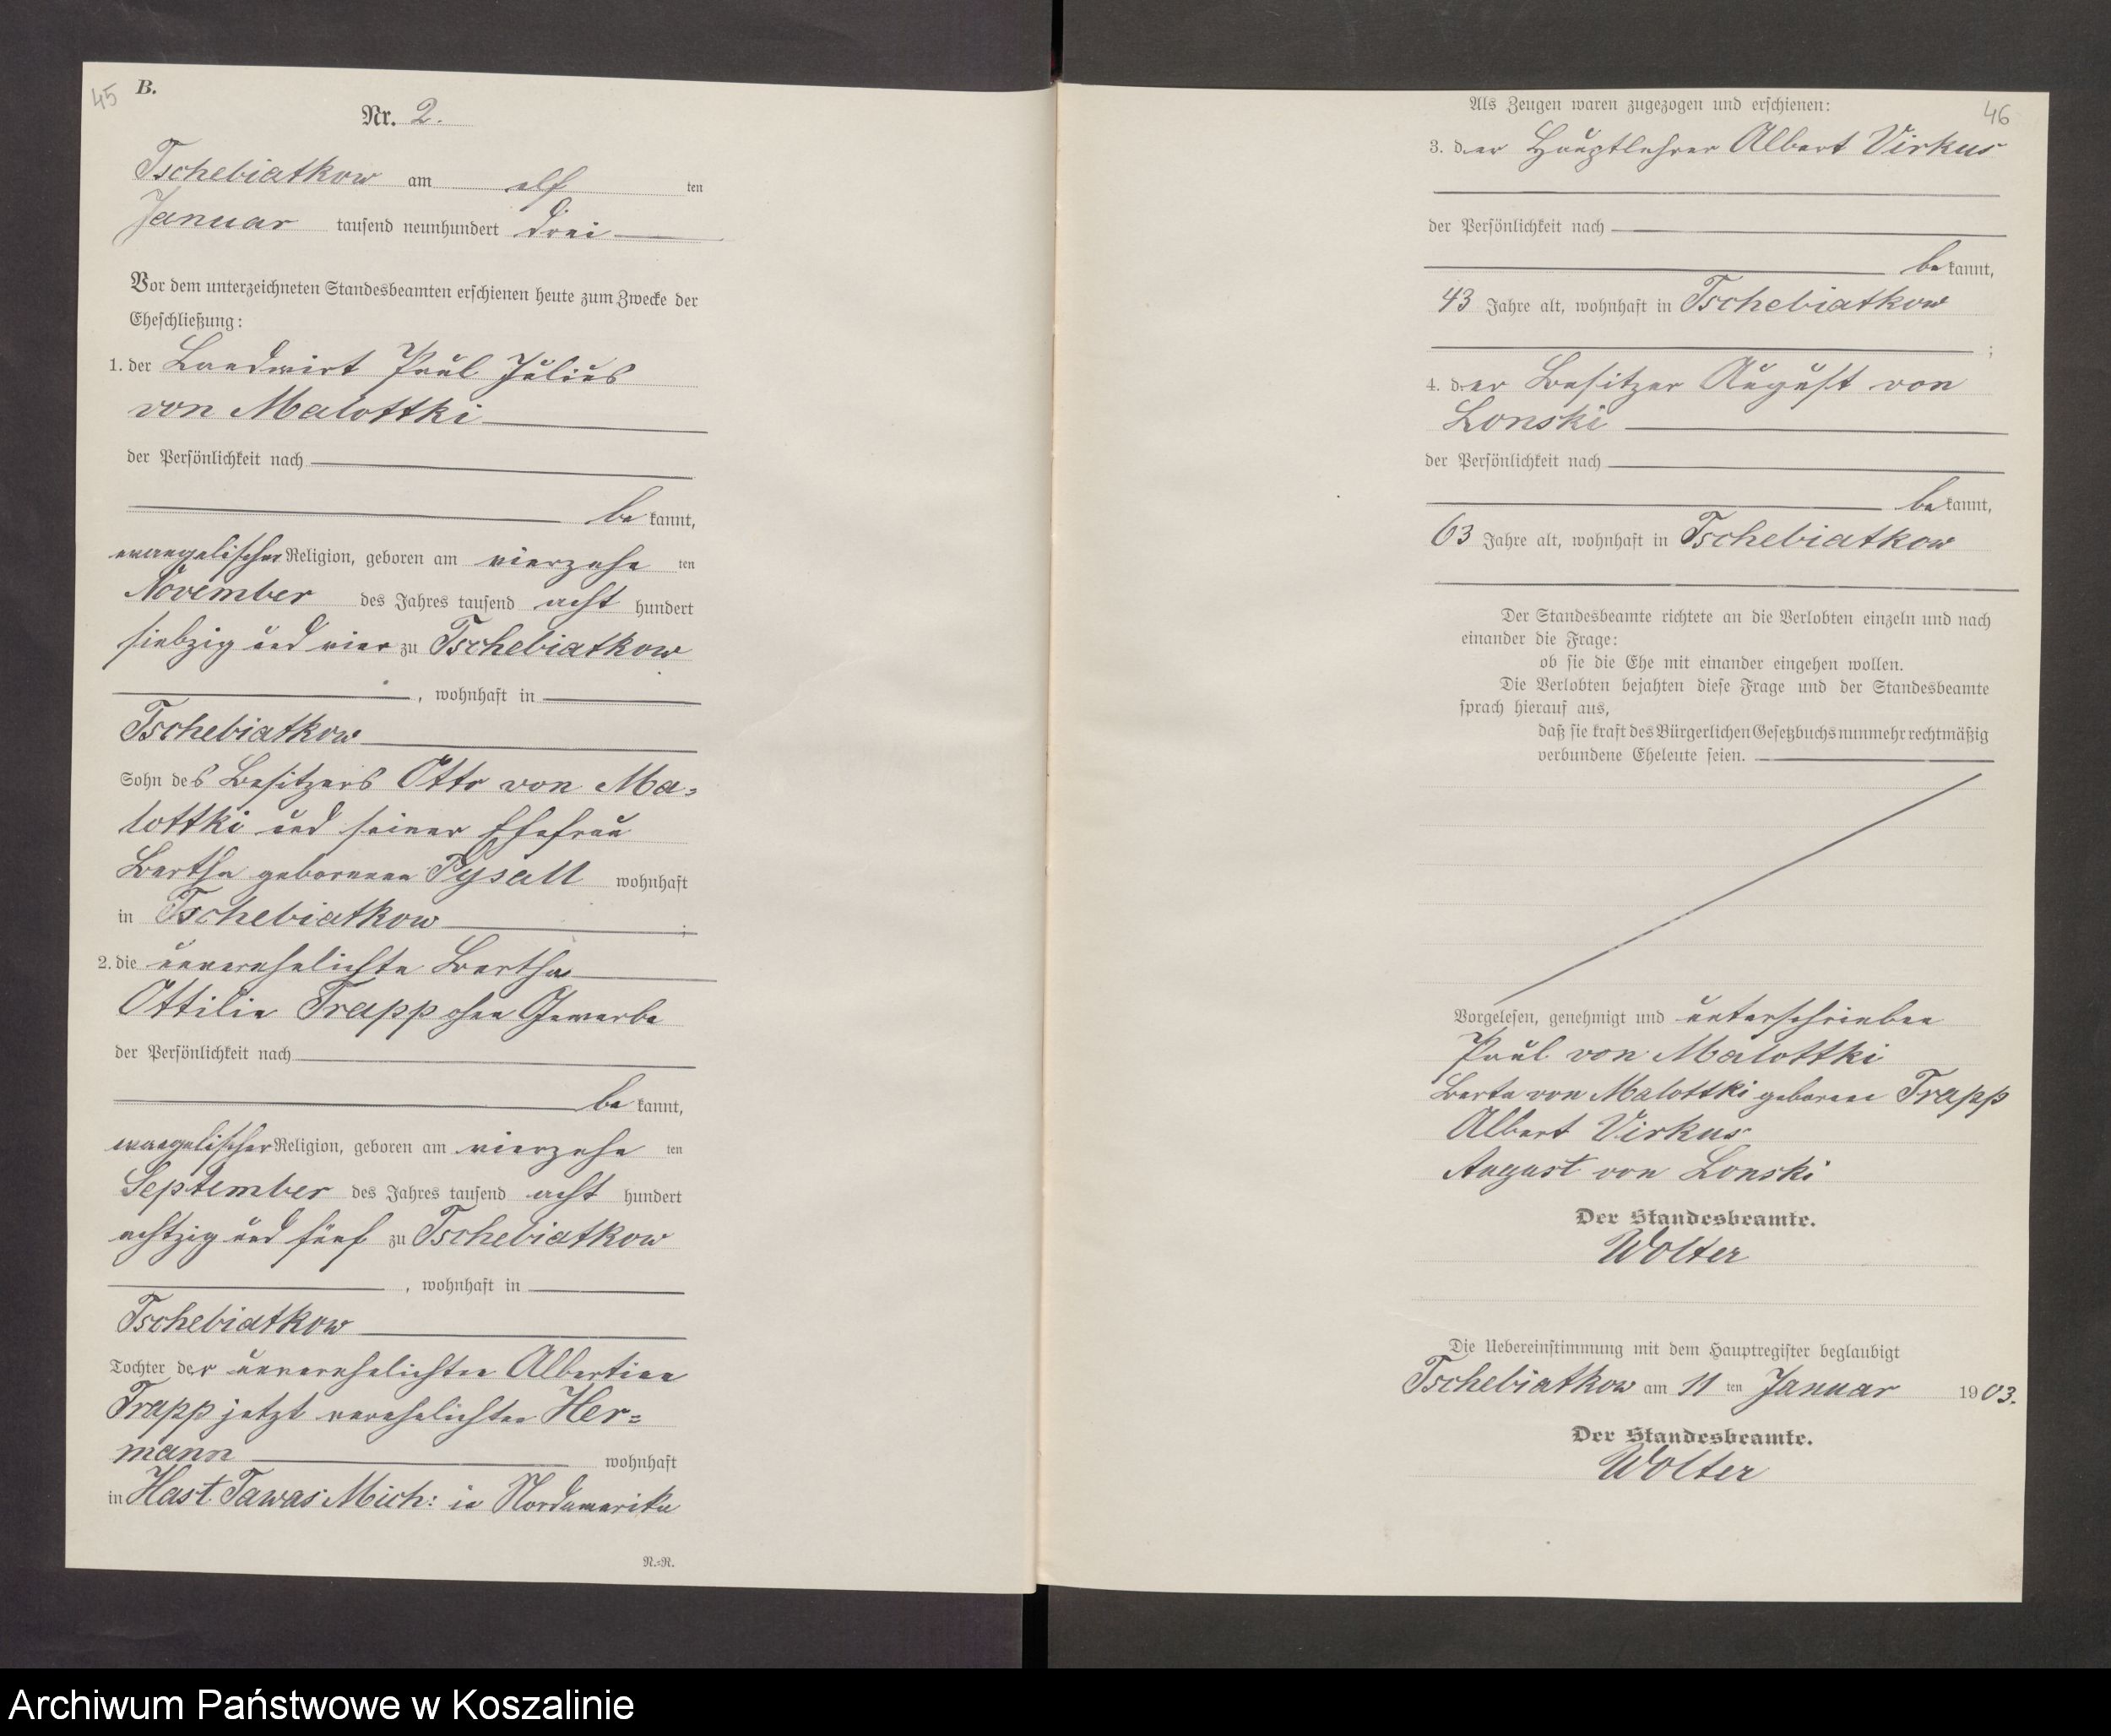 45
B.
Nr. 2.
Tschebiatkow am elf ten
Januar tausend neunhundert drei
Vor dem unterzeichneten Standesbeamten erschienen heute zum Zwecke der
Eheschließung:
1. der Landwirt Paul Julius
von Malottki
der Persönlichkeit nach
be kannt,
evangelischer Religion, geboren am vierzehn ten
November des Jahres tausend acht hundert
siebzig und vier zu Tschebiatkow
, wohnhaft in
Tschebiatkow
Sohn des Besitzers Otto von Ma=
lottki und seiner Ehefrau
Bertha geborenen Pysall wohnhaft
in Tschebiatkow ;
2. die unverehelichte Bertha
Ottilie Trapp ohne Gewerbe
der Persönlichkeit nach
be kannt,
evangelischer Religion, geboren am vierzehn ten
September des Jahres tausend acht hundert
achtzig und fünf zu Tschebiatkow
, wohnhaft in
Tschebiatkow
Tochter der unverehelichten Albertine
Trapp jetzt verehelichten Her=
mann wohnhaft
in Hast. Tawas Mich: in Nordamerika
N.=N.
46
Als Zeugen waren zugezogen und erschienen:
3. der Hauptlehrer Albert Virkus
der Persönlichkeit nach
be kannt,
43 Jahre alt, wohnhaft in Tschebiatkow
;
4. der Besitzer August von
Lonski
der Persönlichkeit nach
be kannt,
63 Jahre alt, wohnhaft in Tschebiatkow
Der Standesbeamte richtete an die Verlobten einzeln und nach
einander die Frage:
ob sie die Ehe mit einander eingehen wollen.
Die Verlobten bejahten diese Frage und der Standesbeamte
sprach hierauf aus,
daß sie kraft des Bürgerlichen Gesetzbuchs nunmehr rechtmäßig
verbundene Eheleute seien.
Vorgelesen, genehmigt und unterschrieben
Paul von Malottki
Berta von Malottki geborene Trapp
Albert Virkus
August von Lonski
Der Standesbeamte.
Wolter
Die Uebereinstimmung mit dem Hauptregister beglaubigt
Tschebiatkow am 11 ten Januar 1903.
Der Standesbeamte.
Wolter
Archiwum Państwowe w Koszalinie